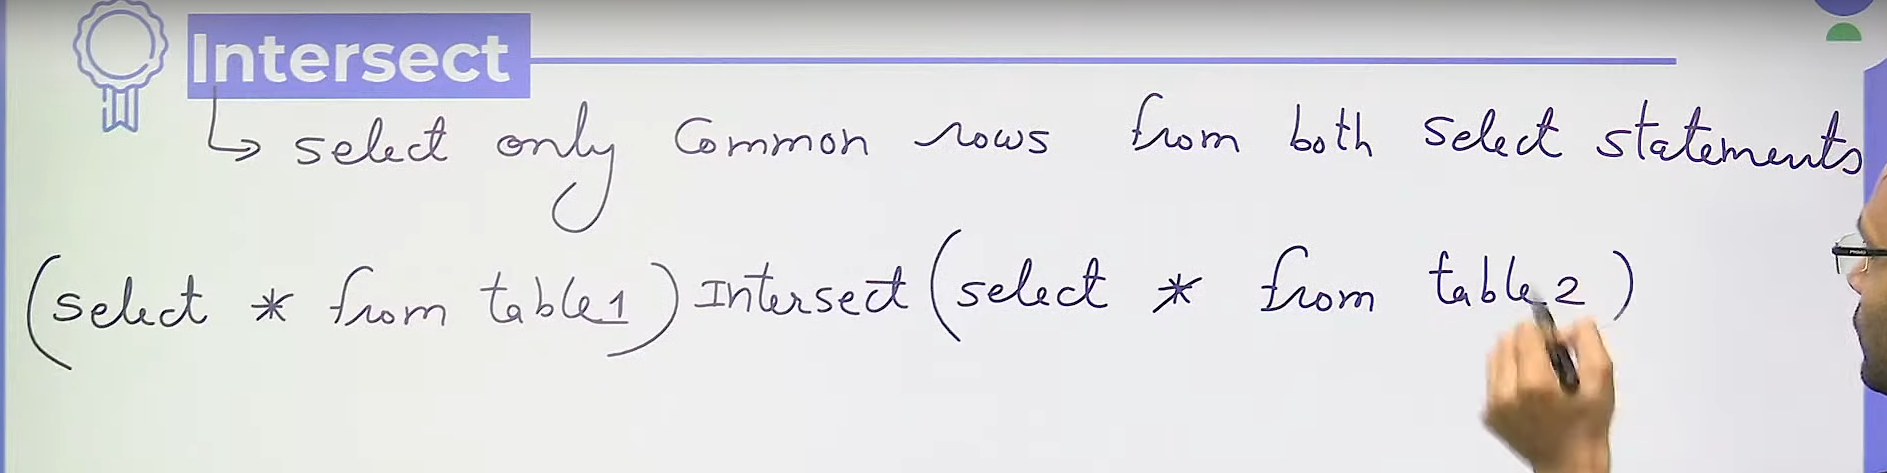 Intersect
↳ select only Common rows from both select statements
(select * from table1) Intersect (select * from table2)